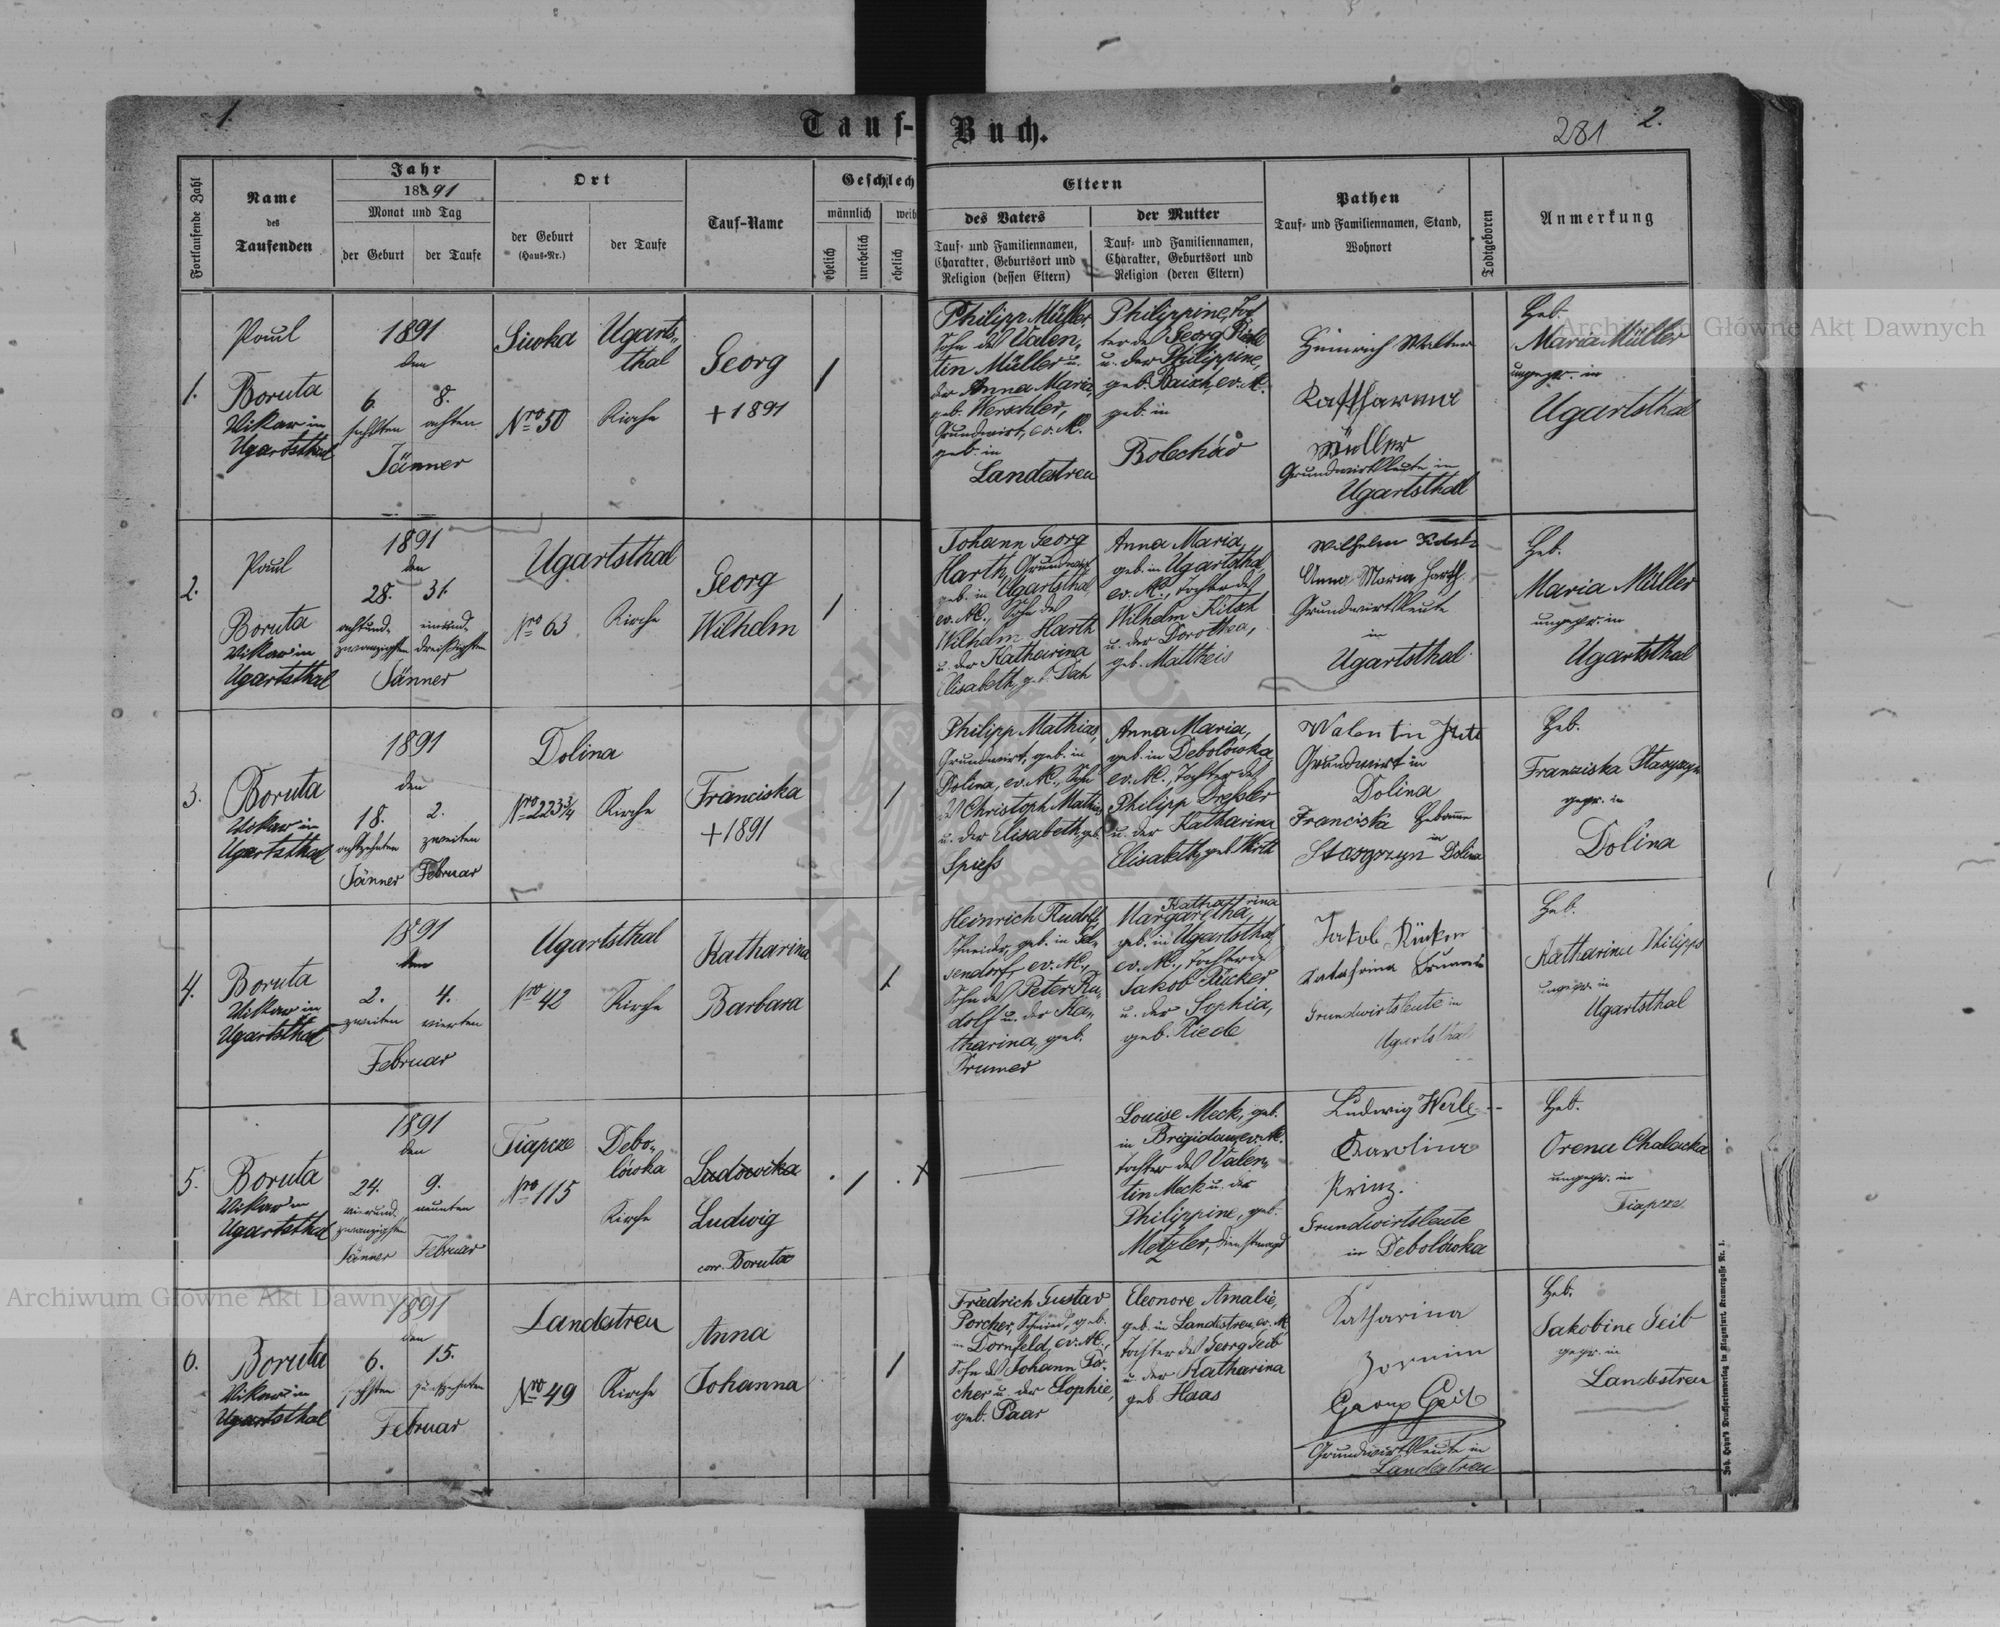 1.
Tauf-Buch.
281
2.
Fortlaufende Zahl
Name
des
Taufenden
Jahr
1891
Monat und Tag
der Geburt
der Taufe
Ort
der Geburt
(Haus-Nr.)
der Taufe
Tauf-Name
Geschlech
männlich
weib
ehelich
unehelich
ehelich
Eltern
des Vaters
Tauf- und Familiennamen,
Charakter, Geburtsort und
Religion (dessen Eltern)
der Mutter
Tauf- und Familiennamen,
Charakter, Geburtsort und
Religion (deren Eltern)
Pathen
Tauf- und Familiennamen, Stand,
Wohnort
Todtgeboren
Anmerkung
1.
Paul
Boruta
Vikar in
Ugartsthal
1891
den
6.
sechsten
8.
achten
Jänner
Siwka
Nro 50
Ugarts-
thal
Kirche
Georg
+ 1891
1
Philipp Müller,
Sohn des Valen-
tin Müller u.
der Anna Maria,
geb. Werschler,
Grundwirt, ev. A.
geb. in
Landestreu
Philippine, Toch
ter des Georg
u. der Philippine,
geb. ev. A.
geb. in
Bolechów
Heinrich Walter
Katharina
Müller
Grundwirtsleute in
Ugartsthal
Heb.
Maria Müller
ungepr. in
Ugartsthal
2.
Paul
Boruta
Vikar in
Ugartsthal
1891
den
28.
achtund-
zwanzigsten
31.
einund-
dreißigsten
Jänner
Ugartsthal
Nro 63
Kirche
Georg
Wilhelm
1
Johann Georg
Harth, Grundwirt
geb. in Ugartsthal,
ev. A., Sohn des
Wilhelm Harth
u. der Katharina
Elisabeth, geb.
Anna Maria,
geb. in Ugartsthal,
ev. A., Tochter des
Wilhelm Kitsch
u. der Dorothea,
geb. Mattheis
Wilhelm
Anna Maria Harth
Grundwirtsleute
in
Ugartsthal
Heb.
Maria Müller
ungepr. in
Ugartsthal
3.
Boruta
Vikar in
Ugartsthal
1891
den
18.
achtzehnten
Jänner
2.
zweiten
Februar
Dolina
Nro 223 3/4
Kirche
Franciska
+ 1891
1
Philipp Mathias,
Grundwirt, geb. in
Dolina, ev. A., Sohn
des Christoph Mathias
u. der Elisabeth, geb.
Spiess
Anna Maria,
geb. in Debolówka
ev. A., Tochter des
Philipp Dressler
u. der Katharina
Elisabeth, geb. Wirth
Walentin
Grundwirt in
Dolina
Franciska Hebamme
in
Stasyszyn Dolina
Heb.
Franziska Stasyszyn
gepr. in
Dolina
4.
Boruta
Vikar in
Ugartsthal
1891
den
2.
zweiten
4.
vierten
Februar
Ugartsthal
Nro 42
Kirche
Katharina
Barbara
1
Heinrich Rudolf,
Schneider, geb. in Gel-
sendorf, ev. A.,
Sohn des Peter Ru-
dolf u. der Ka-
tharina, geb.
Brumer
Katharina
Margaretha,
geb. in Ugartsthal,
ev. A., Tochter des
Jakob Rücker
u. der Sophia,
geb. Riede
Jakob Rücker
Katharina
Grundwirtsleute in
Ugartsthal
Heb.
Katharina Philipps
ungepr. in
Ugartsthal
5.
Boruta
Vikar in
Ugartsthal
1891
den
24.
vierund-
zwanzigsten
Jänner
9.
neunten
Februar
Tiapcze
Nro 115
Debo-
lówka
Kirche
Ludowika
Ludwig
corr. Boruta
1
Louise Meck, geb.
in Brigidau, ev. A.
Tochter des Valen-
tin Meck u. der
Philippine, geb.
Metzler, Dienstmagd
Ludwig Werle
Karolina
Prinz.
Grundwirtsleute
in Debolówka
Heb.
Orena Chalacka
ungepr. in
Tiapcze
6.
Boruta
Vikar in
Ugartsthal
1891
den
6.
sechsten
15.
fünfzehnten
Februar
Landestreu
Nro 49
Kirche
Anna
Johanna
1
Friedrich Gustav
Porcher, Schmied, geb.
in Dornfeld, ev. A.,
Sohn des Johann Por-
cher u. der Sophie,
geb. Paar
Eleonore Amalie,
geb. in Landestreu, ev. A.
Tochter des Georg Geib
u. der Katharina
geb. Haas
Katharina
Georg Geib
Grundwirtsleute in
Landestreu
Heb.
Jakobine Geib
gepr. in
Landestreu
Joh. Heyn's Druckfortenverlag in Klagenfurt, Kramergasse Nr. 1.
Archiwum Główne Akt Dawnych
Archiwum Główne Akt Dawnych